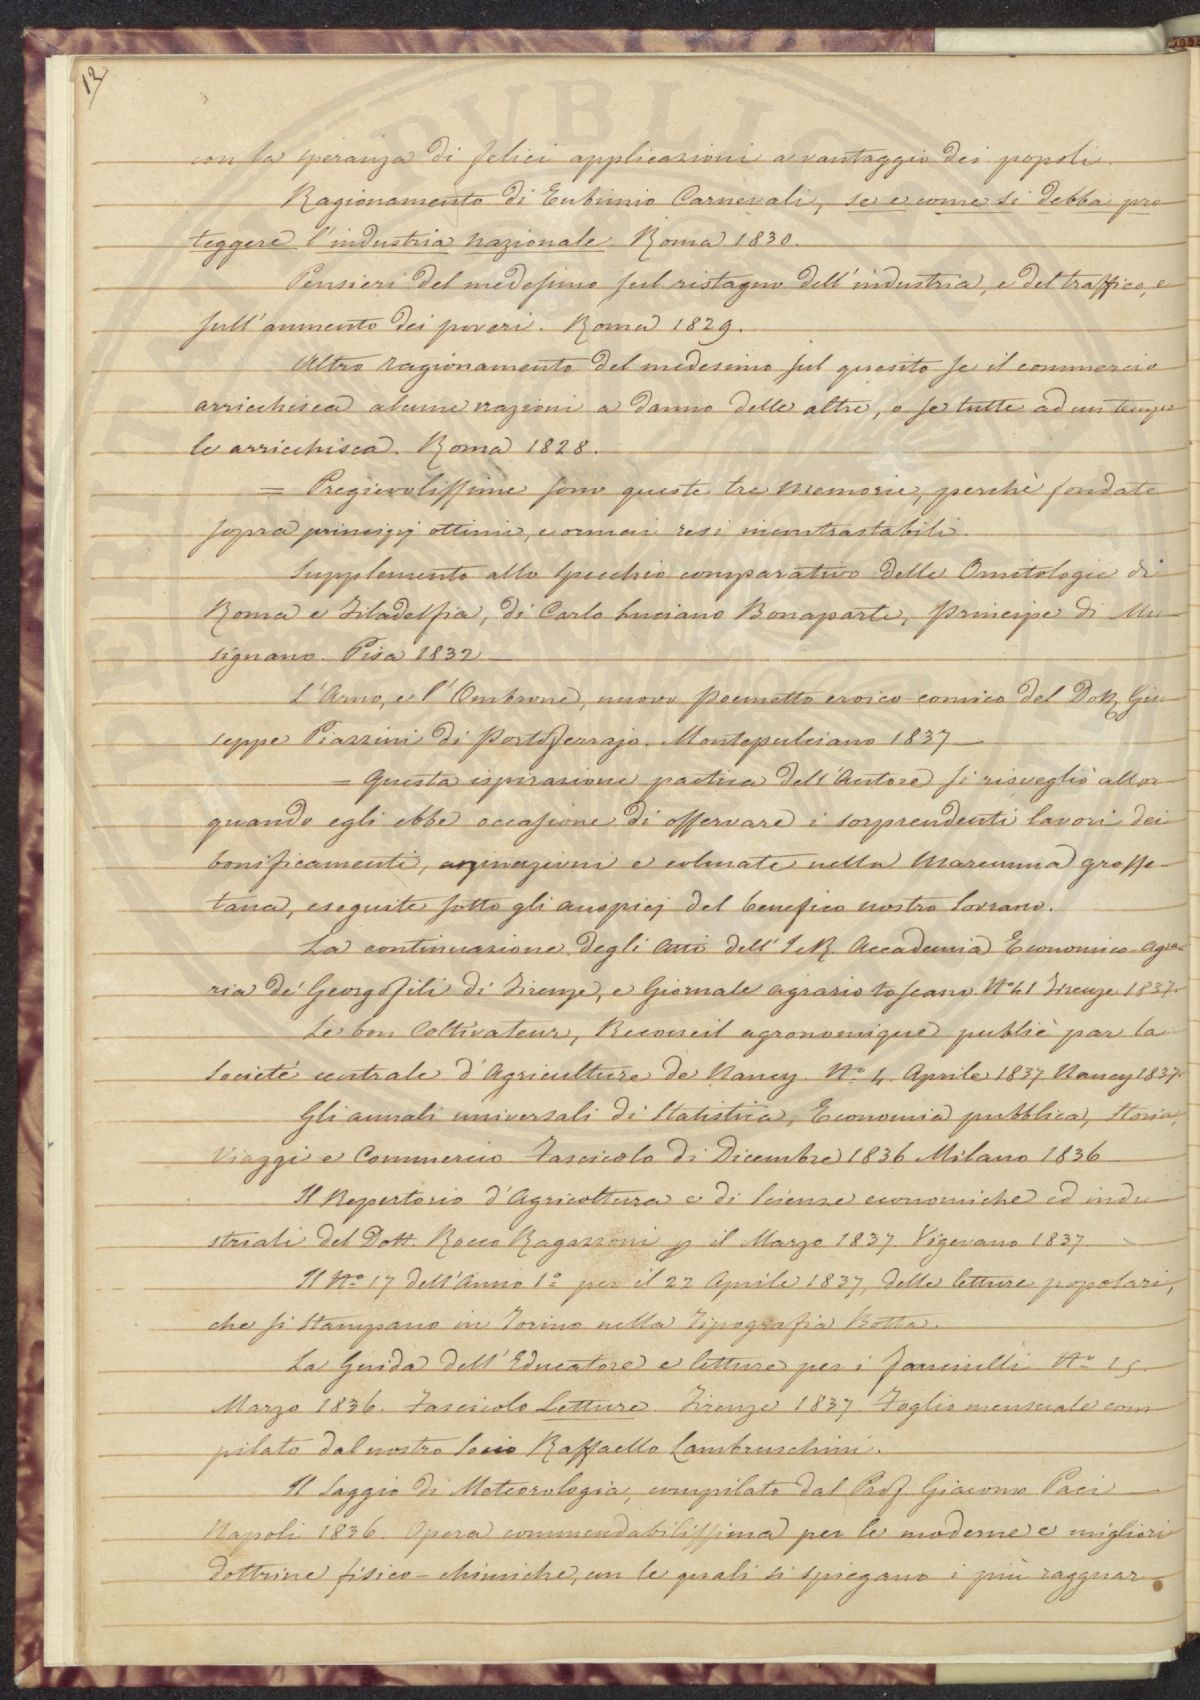 12
con la speranza di felici applicazioni a vantaggio dei popoli.
Ragionamento di Eutimio Carnevali, se e come si debba pro
teggere l'industria nazionale. Roma 1830.
Pensieri del medesimo sul ristagno dell'industria, e del traffico, e
sull'aumento dei poveri. Roma 1829.
Altro ragionamento del medesimo sul quesito se il commercio
arricchisca alcune nazioni a danno delle altre, o se tutte ad un tempo
le arricchisca. Roma 1828.
= Pregievolissime sono queste tre memorie, perchè fondate
sopra principj ottimi, e ormai resi incontrastabili.
Supplemento allo specchio comparativo delle Ornitologie di
Roma e Filadelfia, di Carlo Luciano Bonaparte, Principe di Mu-
signano. Pisa 1832
L'Arno, e l'Ombrone, nuovo poemetto eroico-comico del Dott. Giu-
seppe Piazzini di Portoferrajo. Montepulciano 1837
= Questa ispirazione poetica dell'Autore si risvegliò allor
quando egli ebbe occasione di osservare i sorprendenti lavori dei
bonificamenti, arginazioni e colmate nella Maremma grosse-
tana, eseguite sotto gli auspicj del benefico nostro Sovrano.
La continuazione degli Atti dell'I e R. Accademia Economico-Agra-
ria de' Georgofili di Firenze, e Giornale agrario toscano. N.º 41 Firenze 1837.
Le bon Coltivateur, Recoueil agronomique publiè par la
Societé centrale d'Agriculture de Nancy. N.º 4. Aprile 1837 Nancy 1837.
Gli annali universali di Statistica, Economia pubblica, Storia,
Viaggi e Commercio Fascicolo di Dicembre 1836 Milano 1836
Il Repertorio d'Agricoltura e di Scienze economiche ed indu-
striali del Dott. Rocco Ragazzoni p il Marzo 1837. Vigevano 1837
Il N.º 17 dell'Anno 1º per il 22 Aprile 1837, delle letture popolari,
che si stampano in Torino nella Tipografia Botta.
La Guida dell'Educatore e letture per i fanciulli N.º 15
Marzo 1836. Fascicolo Letture. Firenze 1837. Foglio mensuale com
pilato dal nostro Socio Raffaello Lambruschini.
Il Saggio di Meteorologia, compilato dal Prof. Giacomo Paci
Napoli 1836. Opera commendabilissima per le moderne e migliori
dottrine fisico-chimiche, con le quali si spiegano i più ragguar-